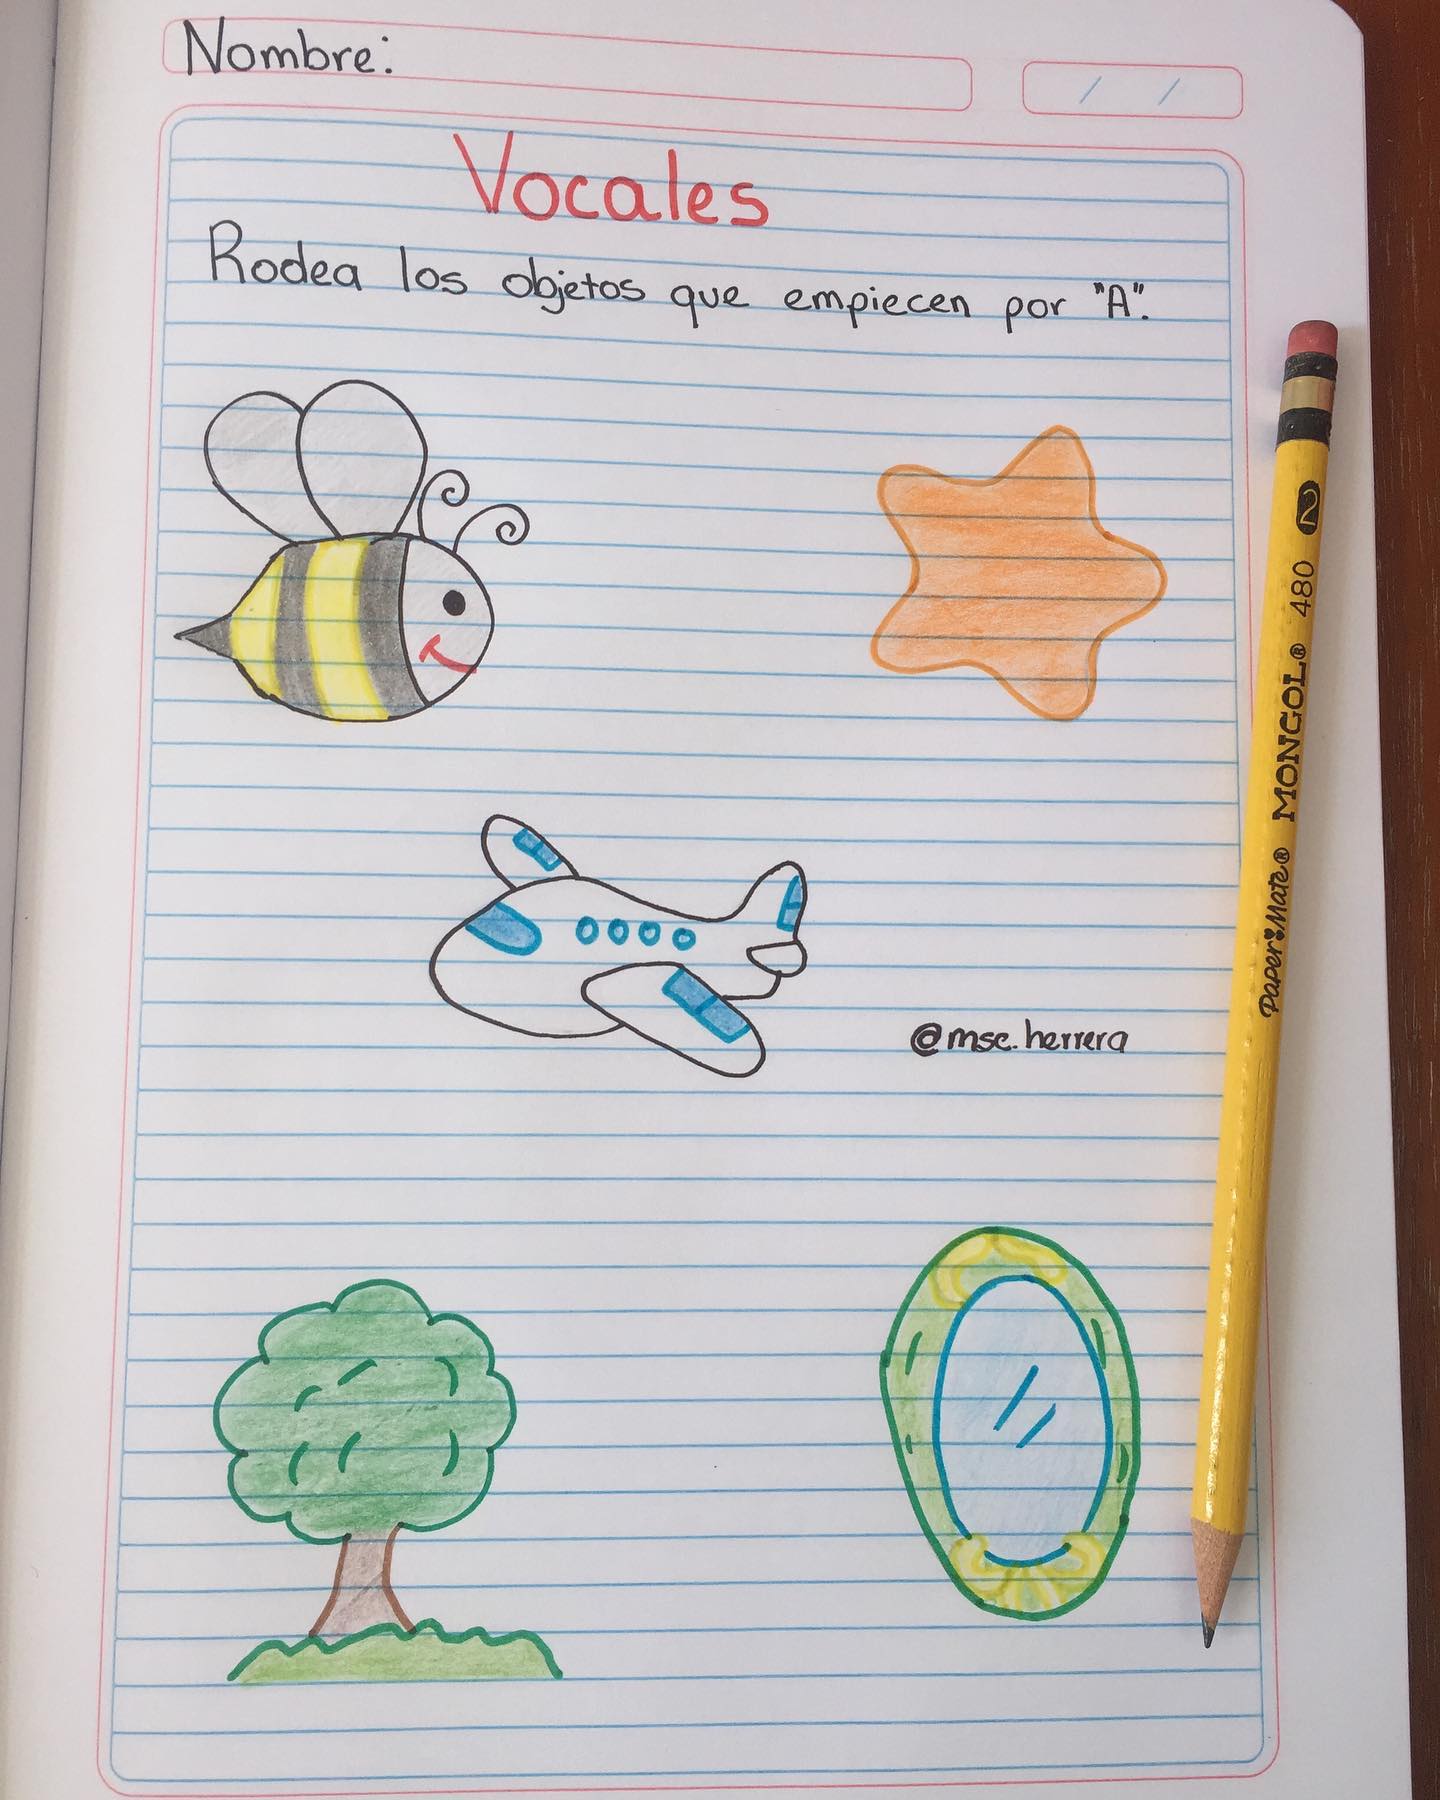 Nombre:
/ /
Vocales
Rodea los objetos que empiecen por "A".
@msc.herrera
Paper Mate® MONGOL® 480 2